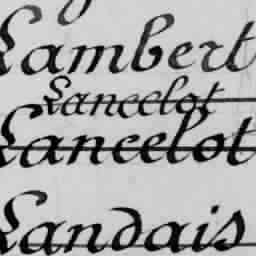 Lambert
Lancelot
Lancelot
Landais